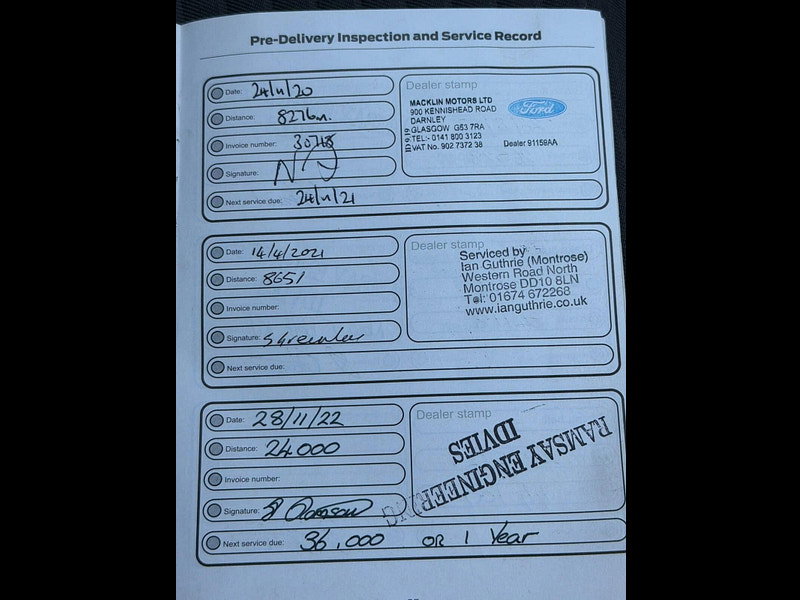 Pre-Delivery Inspection and Service Record
Date: 24/11/20
Distance: 8276m.
Invoice number:
Signature:
Next service due: 24/11/21
Dealer stamp
MACKLIN MOTORS LTD
900 KENNISHEAD ROAD
DARNLEY
GLASGOW G53 7RA
TEL:- 0141 800 3123
VAT No. 902 7372 38 Dealer 91159AA
Ford
Date: 14/4/2021
Distance: 8651
Invoice number:
Signature:
Next service due:
Dealer stamp
Serviced by
Ian Guthrie (Montrose)
Western Road North
Montrose DD10 8LN
Tel: 01674 672268
www.ianguthrie.co.uk
Date: 28/11/22
Distance: 24000
Invoice number:
Signature:
Next service due: 36,000 OR 1 Year
Dealer stamp
RAMSAY ENGINEERING
IDVIES